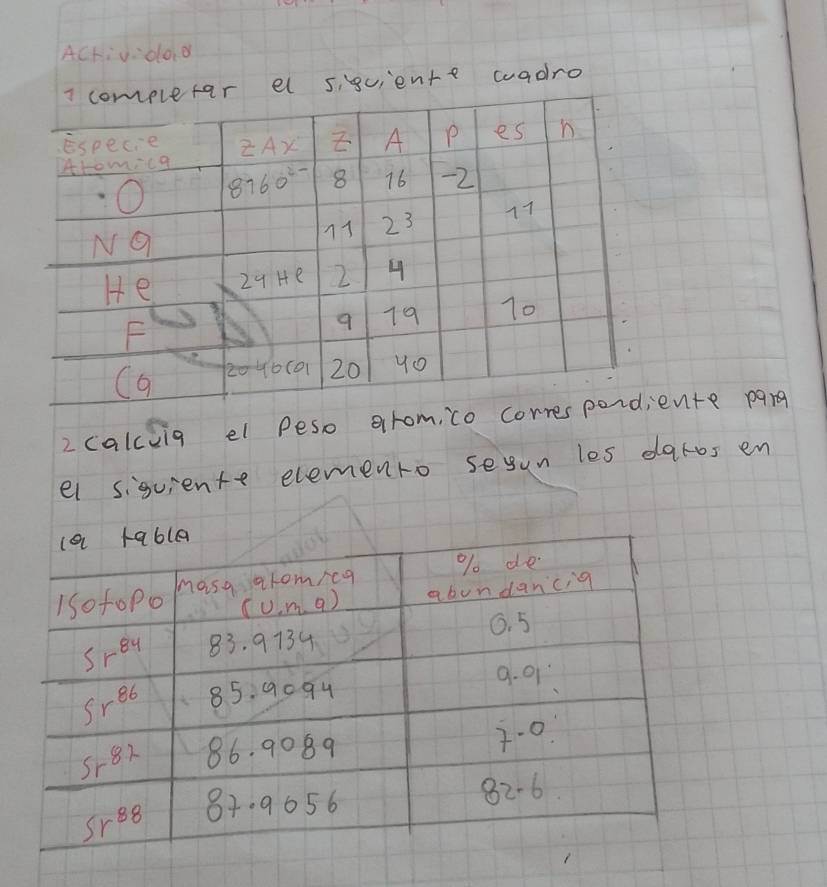 Actividad
1 completar el siguiente cuadro
Especie Atomica ZAX Z A P es n
O 8160²⁻ 8 16 -2
Na 11 23 11
He 24He 2 4
F 9 19 10
Ca 2040Ca 20 40
2 calcula el peso atomico correspondiente para
el siguiente elemento segun los datos en
la tabla
Isotopo masa atomica (u.m.a) % de abundancia
Sr⁸⁴ 83.9134 0.5
Sr⁸⁶ 85.9094 9.9
Sr⁸⁷ 86.9089 7.0
Sr⁸⁸ 87.9056 82.6